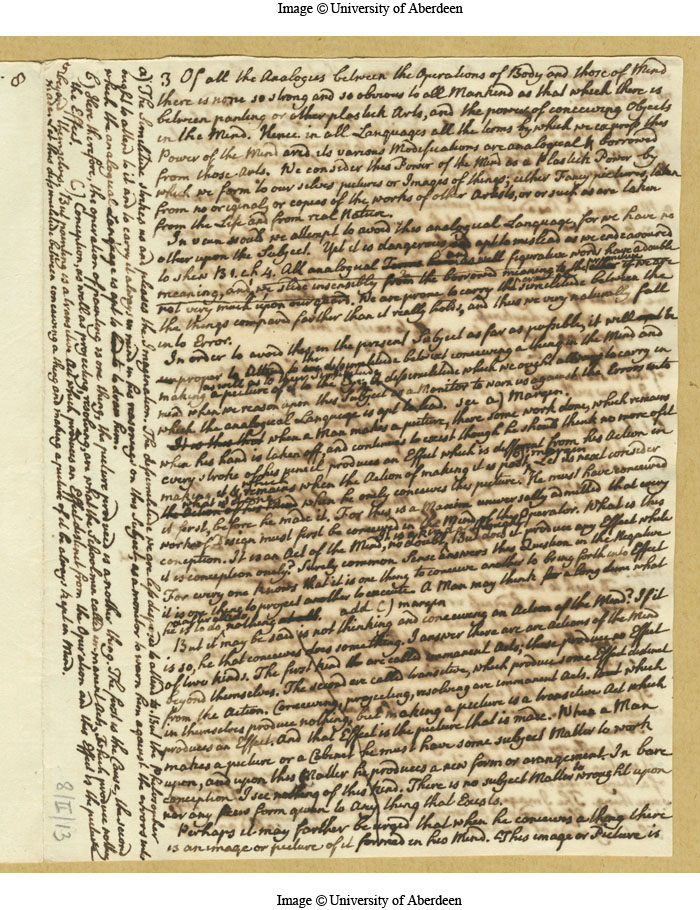 Image © University of Aberdeen
8
3 Of all the Analogies between the Operations of Body and those of Mind
there is none so strong and so obvious to all Mankind as that which there is
between painting or other plastick Arts, and the power of conceiving Objects
in the Mind. Hence in all Languages all the terms by which we express this
Power of the Mind and its various Modifications are analogical & borrowed
from those Arts. We consider this Power of the Mind as a Plastick Power by
which we form to our selves pictures or Images of things; either Fancy pictures, taken
from no original, or copies of the works of other Artists, or such as are taken
from the Life and from real Nature.
In vain would we attempt to avoid this analogical Language, for we have no
other upon the Subject. Yet it is dangerous and apt to mislead as we endeavoured
to shew B 1. ch 4. All analogical as well figurative words have a double
meaning, and we slide insensibly from the borrowed meaning to the if we are
not very much upon our guard. We are prone to carry the similitude between the
the things compared farther than it really holds, and thus we very naturally fall
into Error.
In order to avoid this, in the present Subject as far as possible, it will
proper to attend to the dissimilitude betwixt conceiving a thing in the Mind and
making a picture of it to the Eye, A dissimilitude which we ought to carry in
mind when we reason upon this Subject as a Monitor to warn us against the Errors into
which the analogical Language is apt to lead. see a) Margin
when a Man makes a picture, there some work done, which remains
when his hand is taken off, and continues to exist though he should think no more of it
every stroke of his pencil produces an Effect which is different from his Action in
making it, & remains when the Action of making it is past. margin Let us next consider
when he only conceives this picture. He must have conceived
it first, before he made it. For this is a Maxim universally admitted that every
work of Design must first be conceived in the Mind of the Operator. What is this
conception. It is an Act of the Mind, no doubt But does it produce any Effect while
it is conception only? Surely common Sense answers this Question in the Negative
For every one knows that it is one thing to conceive another to bring forth into Effect
it is one thing to project another to execute. A Man may think for a long time what
he is to do nothing add C) margin
But it may be said is not thinking and conceiving an Action of the Mind? If it
is so, he that conceives does something. I answer there are are Actions of the Mind
of two kinds. The first kind are called immanent Acts; these produce no Effect
beyond themselves. The second are called transitive, which produce some Effect distinct
from the Action. Conceiving, projecting, resolving are immanent Acts. which
in themselves produce nothing, but making a picture is a transitive Act which
produces an Effect. And that Effect is the picture that is made. When a Man
makes a picture or a Cabinet he must have some subject Matter to work
upon, and upon this Matter he produces a new form or arrangement. In bare
conception I see nothing of this kind. There is no subject Matter wrought upon
nor any form given to Any thing that Exists.
Perhaps it may farther be urged that when he conceives a thing there
is an image or picture of it formed in his Mind. This image or Picture is
a) The Similitude strikes us and pleases the Imagination. The dissimilitude we are less disposed to attend to: But the Philosopher
ought to attend to it and to carry it always in mind in his reasonings on this Subject as a monitor to warn him against the errors into
which the analogical Language is apt to draw him
b) Here therefore, the operation of painting is one thing, the picture produced is another thing. The first is the Cause, the second
the Effect. C) Conception, as well as projecting resolving, are what the Schoolmen called immanent Acts, which produce nothing
beyond themselves; But painting is a transitive Act which produces an Effect distinct from the Operation and this Effect is the picture
Let this dissimilitude between conceiving a thing and making a picture of it be always kept in Mind.
8 II/13
Image © University of Aberdeen